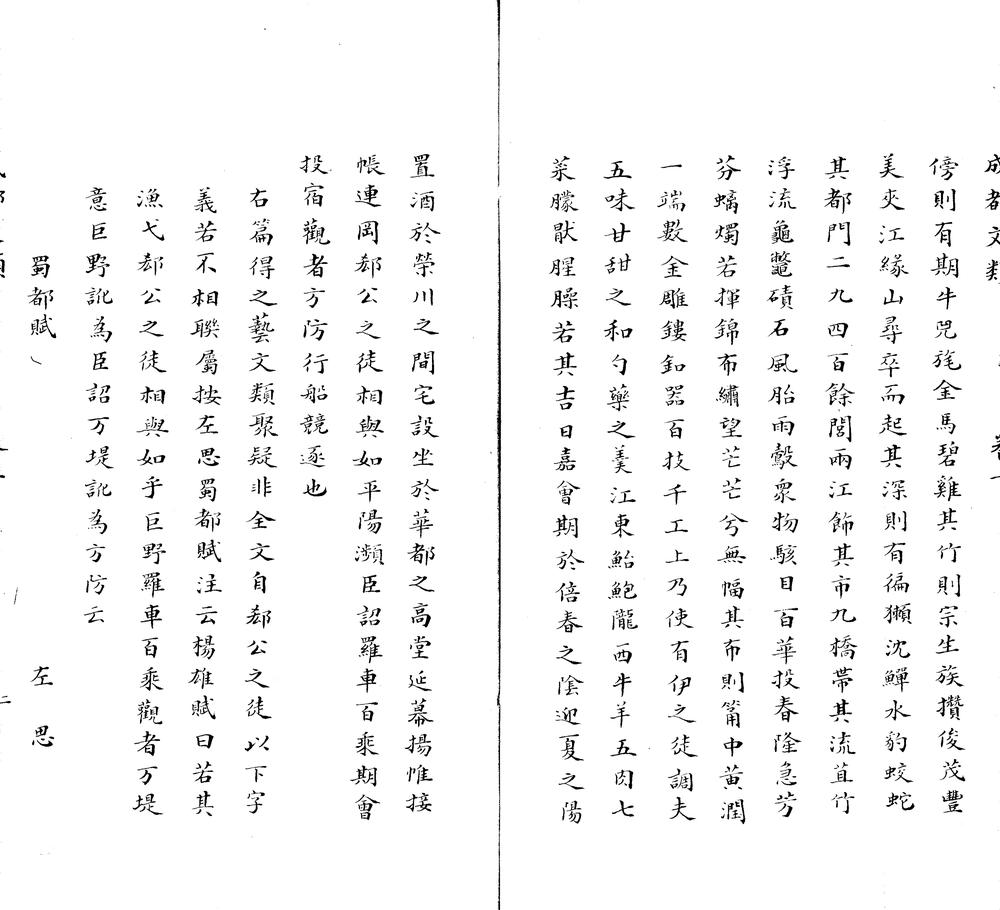 成都文類 卷一
傍則有期牛兕旄金馬碧雞其竹則宗生族攢俊茂豐
美夾江緣山尋卒而起其深則有猵獺沈鱓水豹蛟蛇
其都門二九四百餘閭兩江飾其市九橋帶其流苴竹
浮流龜鼈磧石風胎雨鷇衆物駭目百華投春隆急芳
芬蠵燭若揮錦布繡望芒芒兮無幅其布則筩中黃潤
一端數金雕鏤釦器百技千工上乃使有伊之徒調夫
五味甘甜之和勺藥之羹江東鮐鮑隴西牛羊五肉七
菜朦猒腥臊若其吉日嘉會期於倍春之陰迎夏之陽
置酒於榮川之間宅設坐於華都之高堂延幕揚惟接
帳連岡郄公之徒相與如平陽瀕臣詔羅車百乘期會
投宿觀者方防行船競逐也
右篇得之藝文類聚疑非全文自郄公之徒以下字
義若不相聯屬按左思蜀都賦注云楊雄賦曰若其
漁弋郄公之徒相與如乎巨野羅車百乘觀者万堤
意巨野訛為臣詔万堤訛為方防云
蜀都賦 左思